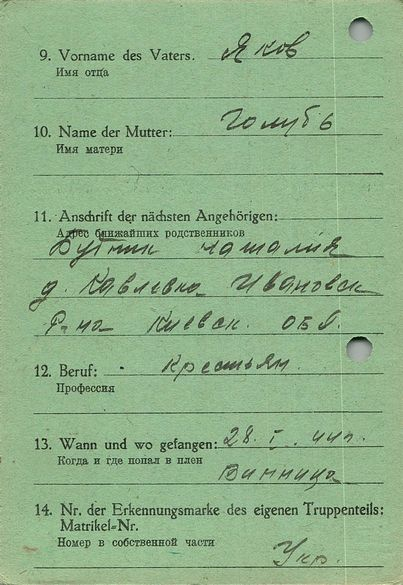 9. Vorname des Vaters. Яков
Имя отца
10. Name der Mutter: Голубь
Имя матери
11. Anschrift der nächsten Angehörigen:
Адрес ближайших родственников
Наталия
д. Ивановск
р-на Киевск. обл.
12. Beruf: крестьян.
Профессия
13. Wann und wo gefangen: 28. I. 44г.
Когда и где попал в плен
Винница
14. Nr. der Erkennungsmarke des eigenen Truppenteils:
Matrikel-Nr.
Номер в собственной части
Укр.